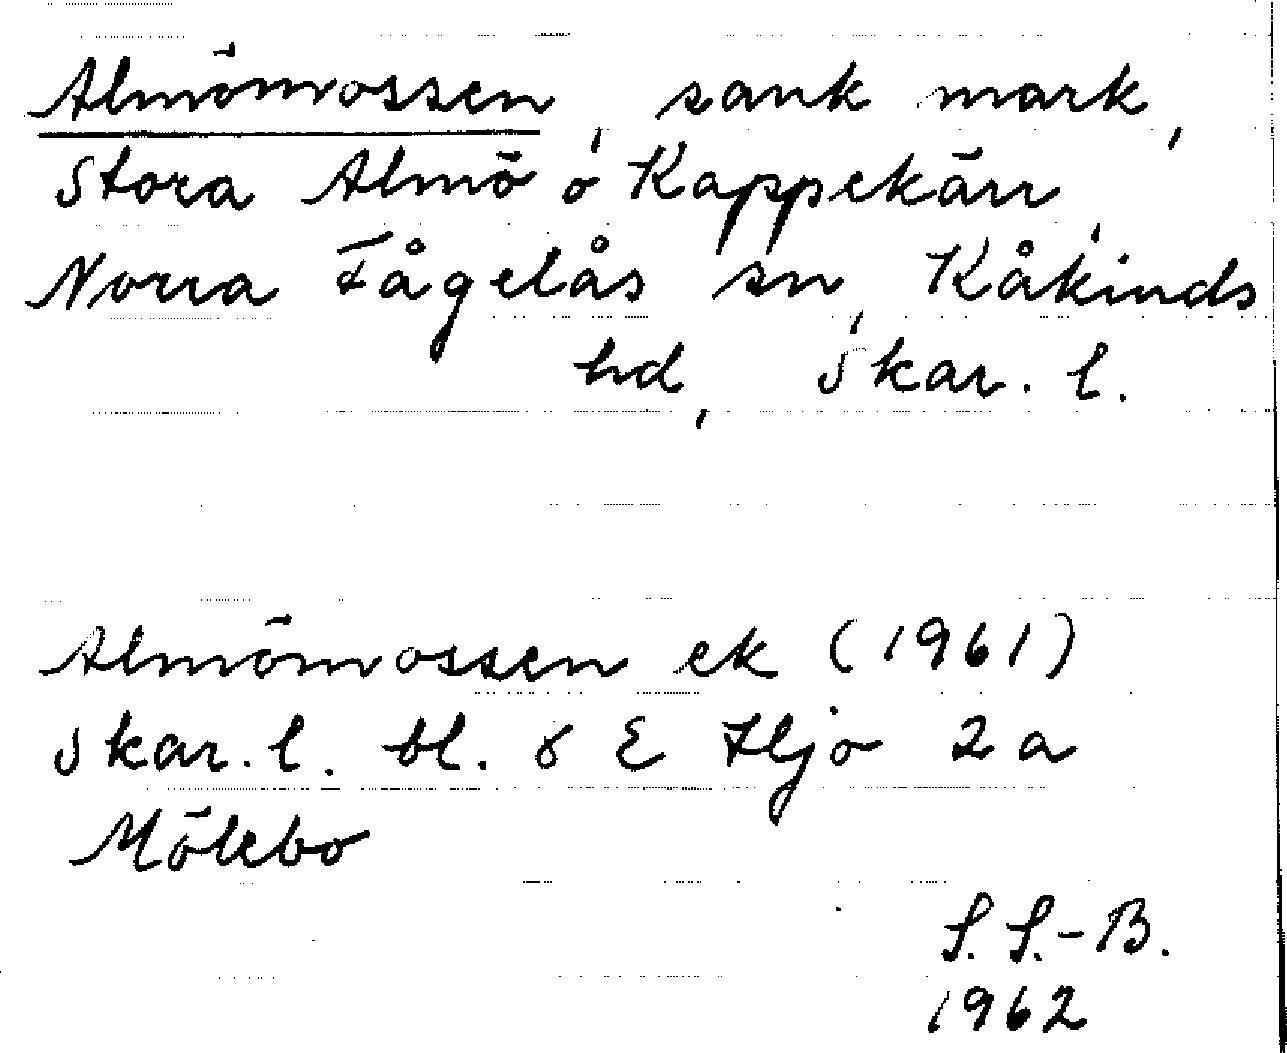 Almömossen, sank mark,
Stora Almö o Kappekärr,
Norra Fågelås sn, Kåkinds
hd, Skar. l.
Almömossen ek (1961)
Skar. l. bl. 8 E Hjo 2a
Mölebo
S. S.-B.
1962